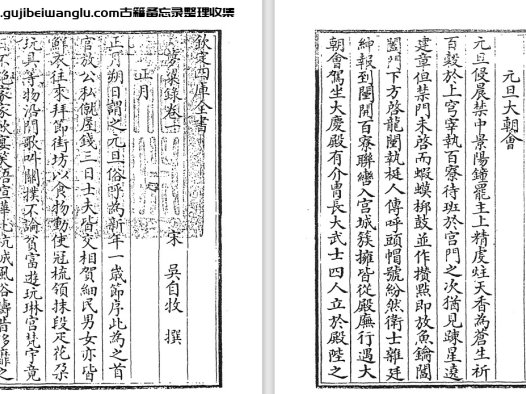 www.gujibeiwanglu.com古籍备忘录整理收集
欽定四庫全書
夢粱錄卷一
宋 吳自牧 撰
正月
正月朔日謂之元旦俗呼為新年一歲節序此為之首
官放公私僦屋錢三日士夫皆交相賀細民男女亦皆
鮮衣往來拜節街坊以食物動使冠梳領抹段疋花朶
玩具等物沿門歌叫關撲不論貧富遊玩琳宮梵宇竟
日不絕家家飲宴笑語喧嘩此杭城風俗疇昔侈靡之
元旦大朝會
元旦侵晨禁中景陽鐘罷主上精虔炷天香為蒼生祈
百穀於上穹宰執百寮待班於宮門之次猶見疎星遠
建章但禁門未啓而蝦蟆梆鼓並作攢點即放魚鑰闔
闔門下方啓龍闥執梃人傳呼頭帽號紛然衛士雜廷
紳報到闥開百寮聯轡入宮城簇擁皆從殿廡行遇大
朝會駕坐大慶殿有介冑長大武士四人立於殿陛之